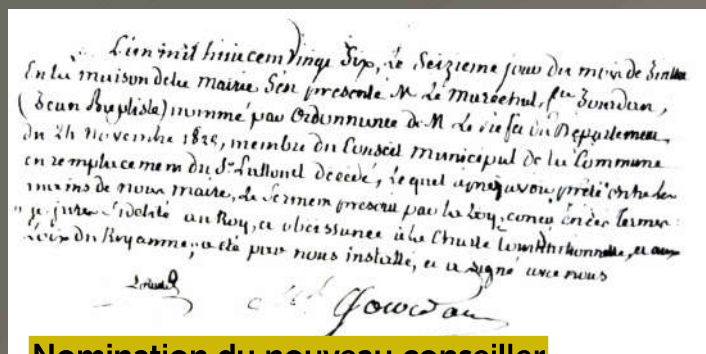 L'an mil huit cent vingt six, le Seizieme jour du mois de
En la maison de la Mairie s'est presenté M Le Marechal, Jourdan,
(Jean Baptiste) nommé par Ordonnance de M Le Prefet du Departement
du 24 Novembre 1825, membre du Conseil municipal de la Commune
en remplacement du Sr Lallouel décédé, lequel après avoir prêté entre les
mains de nous maire, le serment prescrit par la Loy, conçu en ces termes :
"je jure fidelité au Roy, et obeissance à la Charte Constitutionnelle, et aux
Loix du Royaume, a été par nous installé, et a signé avec nous
Jourdan
Nomination du nouveau conseiller